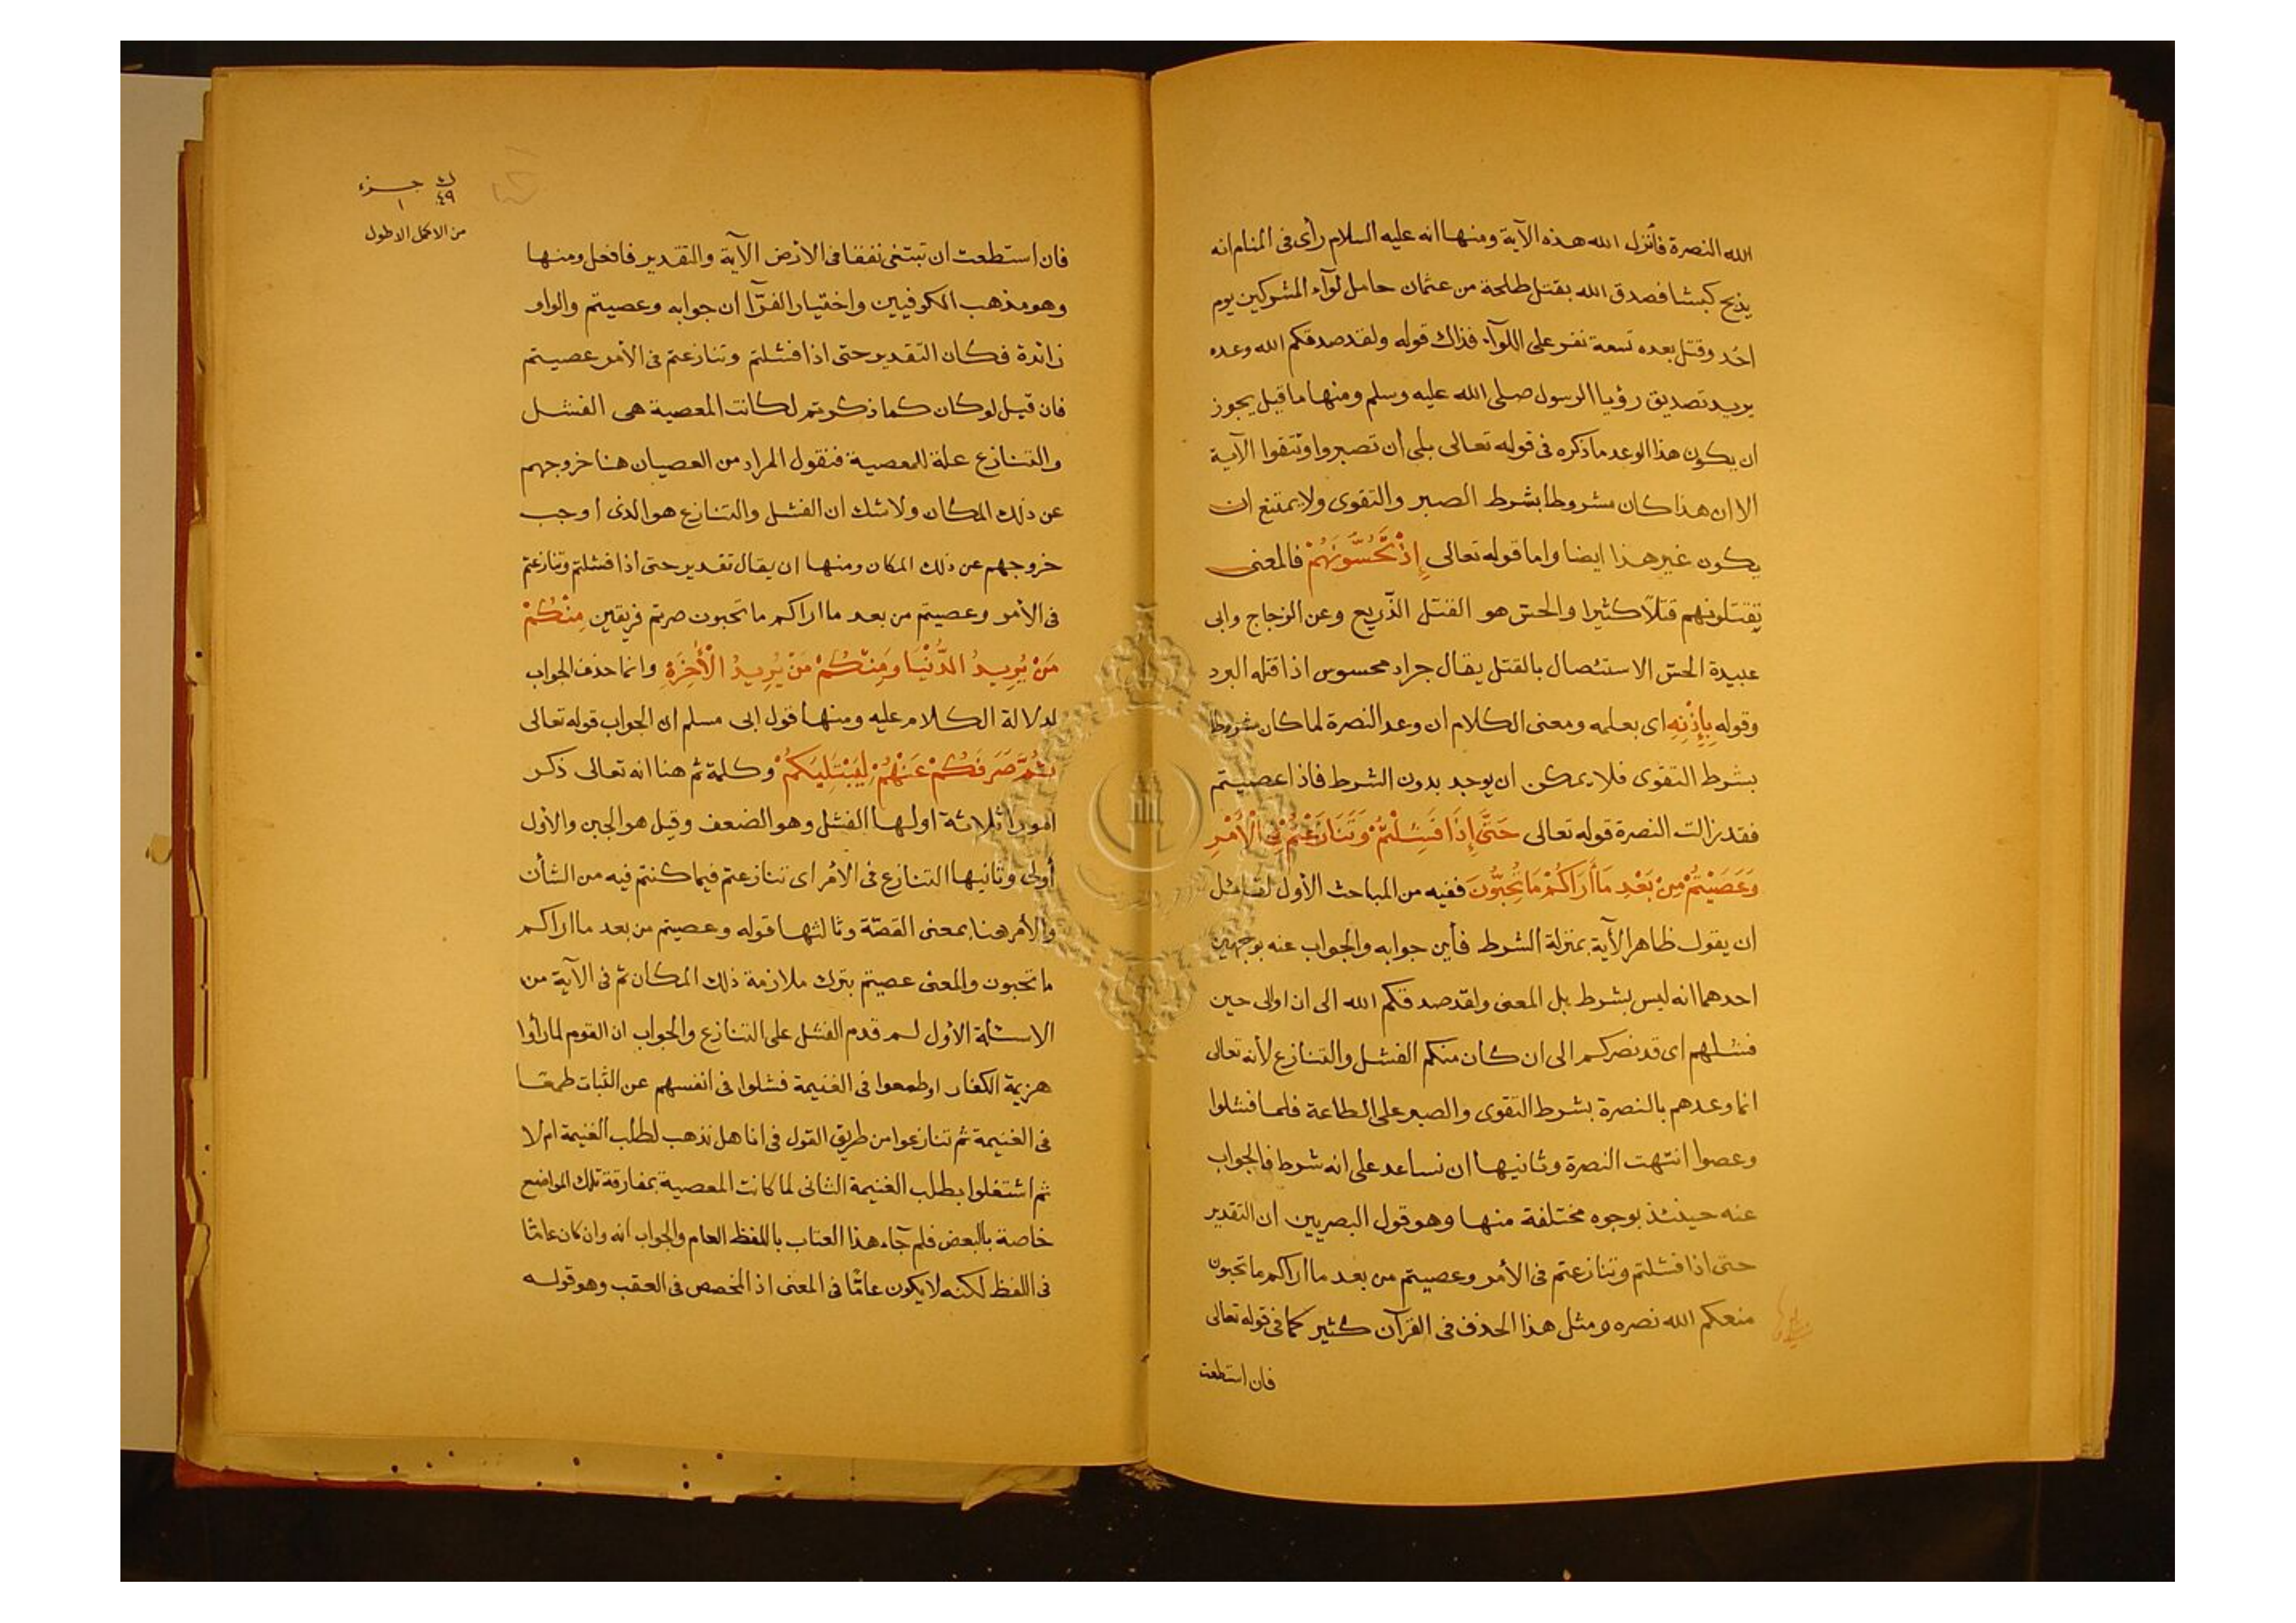 الله النصرة فأنزل الله هذه الآية ومنها انه عليه السلام رأى فى المنام انه
يذبح كبشا فصدق الله بقتل طلحة من عثمان حامل لوآء المشركين يوم
احُد وقتل بعده تسعة نفر على اللوآء فذاك قوله ولقد صدقكم الله وعده
يريد تصديق رؤيا الرسول صلى الله عليه وسلم ومنها ما قيل يجوز
ان يكون هذا الوعد ما ذكره فى قوله تعالى بلى أن تصبروا وتتقوا الآية
الا ان هذا كان مشروطا بشرط الصبر والتقوى ولا يمتنع ان
يكون غير هذا ايضا واما قوله تعالى إِذْ تَحُسُّونَهُمْ فالمعنى
تقتلونهم قتلاً كثيرا والحسّ هو القتل الذّريع وعن الزجاج وابى
عبيدة الحسّ الاستئصال بالقتل يقال جراد محسوس اذا قتله البرد
وقوله بِإِذْنِهِ اى بعلمه ومعنى الكلام ان وعد النصرة لما كان مشروطا
بشرط التقوى فلا يمكن ان يوجد بدون الشرط فاذا عصيتم
فقد زالت النصرة قوله تعالى حَتَّى إِذَا فَشِلْتُمْ وَتَنَازَعْتُمْ فِى الْأَمْرِ
وَعَصَيْتُمْ مِنْ بَعْدِ مَا أَرَاكُمْ مَا تُحِبُّونَ ففيه من المباحث الأول لقائل
ان يقول ظاهر الآية بمنزلة الشرط فأين جوابه والجواب عنه بوجهين
احدهما انه ليس بشرط بل المعنى ولقد صدقكم الله الى ان اوالى حين
فشلهم اى قد نصركم الى ان كان منكم الفشل والتنازع لأنه تعالى
انما وعدهم بالنصرة بشرط التقوى والصبر على الطاعة فلما فشلوا
وعصوا انتهت النصرة وثانيها ان نساعد على انه شرط فالجواب
عنه حينئذ بوجوه مختلفة منها وهو قول البصريين ان التقدير
حتى اذا فشلتم وتنازعتم فى الأمر وعصيتم من بعد ما اراكم ما تحبون
منعكم الله نصره ومثل هذا الحذف فى القرآن كثير كما فى قوله تعالى
فان استطعت
ك ٤٩ جزء ١
من الاكمل الاطول
فان استطعت ان تبتغى نفقا فى الارض الآية والتقدير فافعل ومنها
وهو مذهب الكوفيين واختيار الفرّآ ان جوابه وعصيتم والواو
زائدة فكان التقدير حتى اذا فشلتم وتنازعتم فى الأمر عصيتم
فان قيل لو كان كما ذكرتم لكانت المعصية هى الفشل
والتنازع علة للمعصية فنقول المراد من العصيان هنا خروجهم
عن ذلك المكان ولا شك ان الفشل والتنازع هو الذى اوجب
خروجهم عن ذلك المكان ومنها ان يقال تقدير حتى اذا فشلتم وتنازعتم
فى الأمر وعصيتم من بعد ما اراكم ما تحبون صرتم فريقين مِنْكُمْ
مَنْ يُرِيدُ الدُّنْيَا وَمِنْكُمْ مَنْ يُرِيدُ الْأَخِرَةِ وانما حذف الجواب
لدلالة الكلام عليه ومنها قول ابى مسلم ان الجواب قوله تعالى
ثُمَّ صَرَفَكُمْ عَنْهُمْ لِيَبْتَلِيَكُمْ وكلمة ثم هنا انه تعالى ذكر
امورا ثلاثة اولها الفشل وهو الضعف وقيل هو الجبن والأول
أولى وثانيها التنازع فى الأمر اى تنازعتم فيما كنتم فيه من الشأن
والأمر هنا بمعنى القصّة وثالثها قوله وعصيتم من بعد ما اراكم
ما تحبون والمعنى عصيتم بترك ملازمة ذلك المكان ثم فى الآية من
الاسئلة الأول لم قدم الفشل على التنازع والجواب ان القوم لما رأوا
هزيمة الكفار او طمعوا فى الغنيمة فشلوا فى انفسهم عن الثبات طمعا
فى الغنيمة ثم تنازعوا من طريق القول فى انا هل نذهب لطلب الغنيمة ام لا
ثم اشتغلوا بطلب الغنيمة الثانى لما كانت المعصية بمفارقة تلك المواضع
خاصة بالبعض فلم جآء هذا العتاب باللفظ العام والجواب انه وان كان عامّا
فى اللفظ لكنه لا يكون عامّا فى المعنى اذ المخصص فى العقب وهو قوله